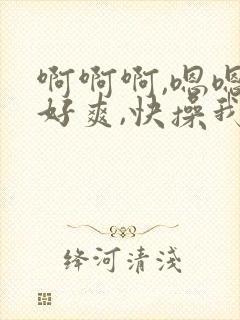 啊啊啊,嗯嗯
好爽,快操我
绛河清淺